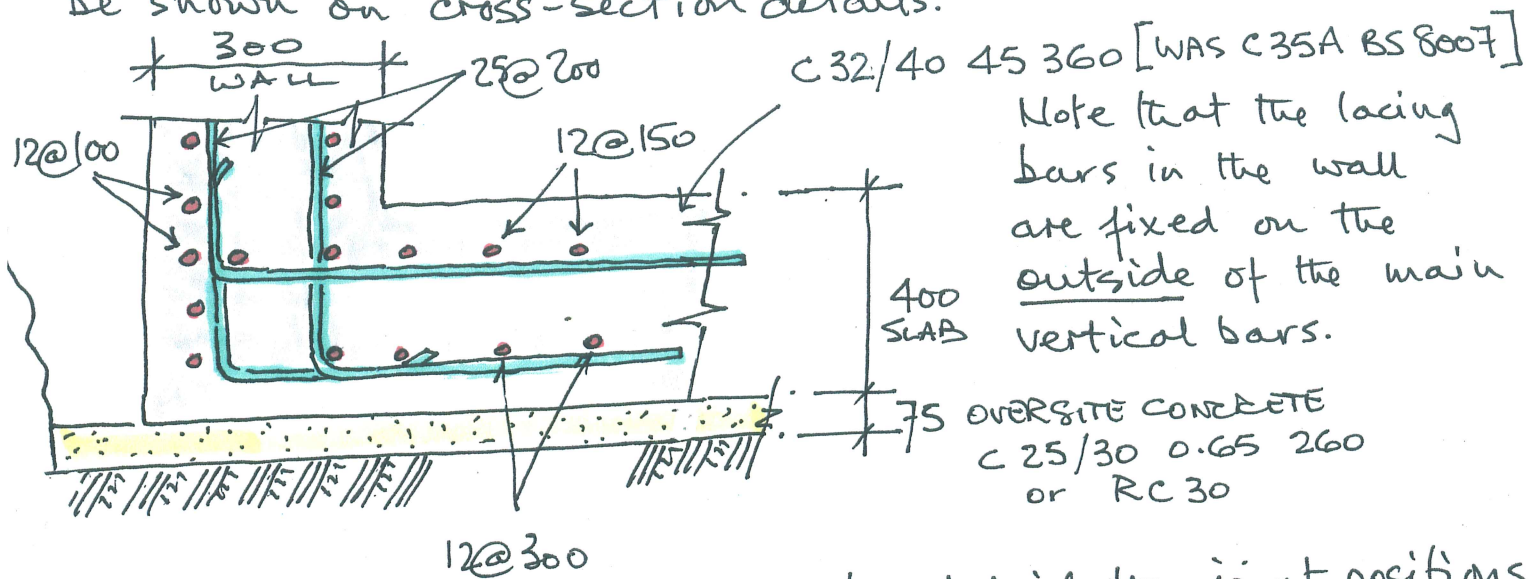 be shown on cross-section details.
300
WALL
25@200
C 32/40 45 360 [WAS C35A BS 8007]
12@100
12@150
Note that the lacing
bars in the wall
are fixed on the
outside of the main
vertical bars.
400
SLAB
75 OVERSITE CONCRETE
C 25/30 0.65 260
or RC 30
12@300
joint positions